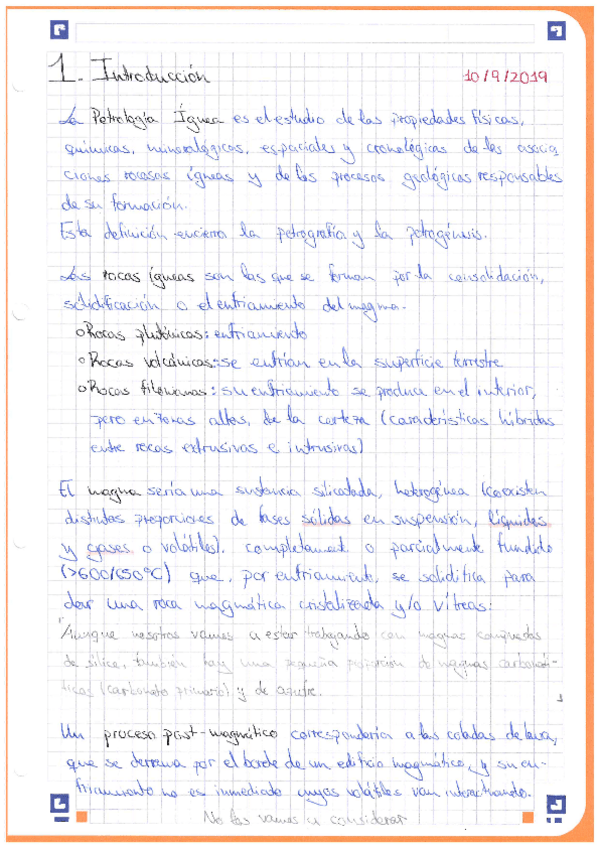 1. Introducción 10/9/2019
La Petrología Ígnea es el estudio de las propiedades físicas,
químicas, mineralógicas, espaciales y cronológicas de las asocia
ciones rocosas ígneas y de los procesos geológicos responsables
de su formación.
Esta definición encierra la petrografía y la petrogénesis.
Las rocas ígneas son las que se forman por la consolidación,
solidificación o el enfriamiento del magma.
o Rocas plutónicas: enfriamiento
o Rocas volcánicas: se enfrían en la superficie terrestre
o Rocas filonianas: su enfriamiento se produce en el interior,
pero en zonas altas, de la corteza (características híbridas
entre rocas extrusivas e intrusivas)
El magma sería una sustancia silicatada, heterogénea (coexisten
distintas proporciones de fases sólidas en suspensión, líquidas
y gases o volátiles), completament o parcialmente fundido
(>600/650°C) que, por enfriamiento, se solidifica para
dar una roca magmática cristalizada y/o vítreas:
"Aunque nosotros vamos a estar trabajando con magmas compuestos
de sílice, también hay una pequeña proporción de magmas carbona-
ticos (carbonato primario) y de azufre.
Un proceso post-magmático correspondería a las coladas de lava,
que se derrama por el borde de un edificio magmático, y su en-
friamiento no es inmediato cuyos volátiles van interactuando.
No los vamos a considerar